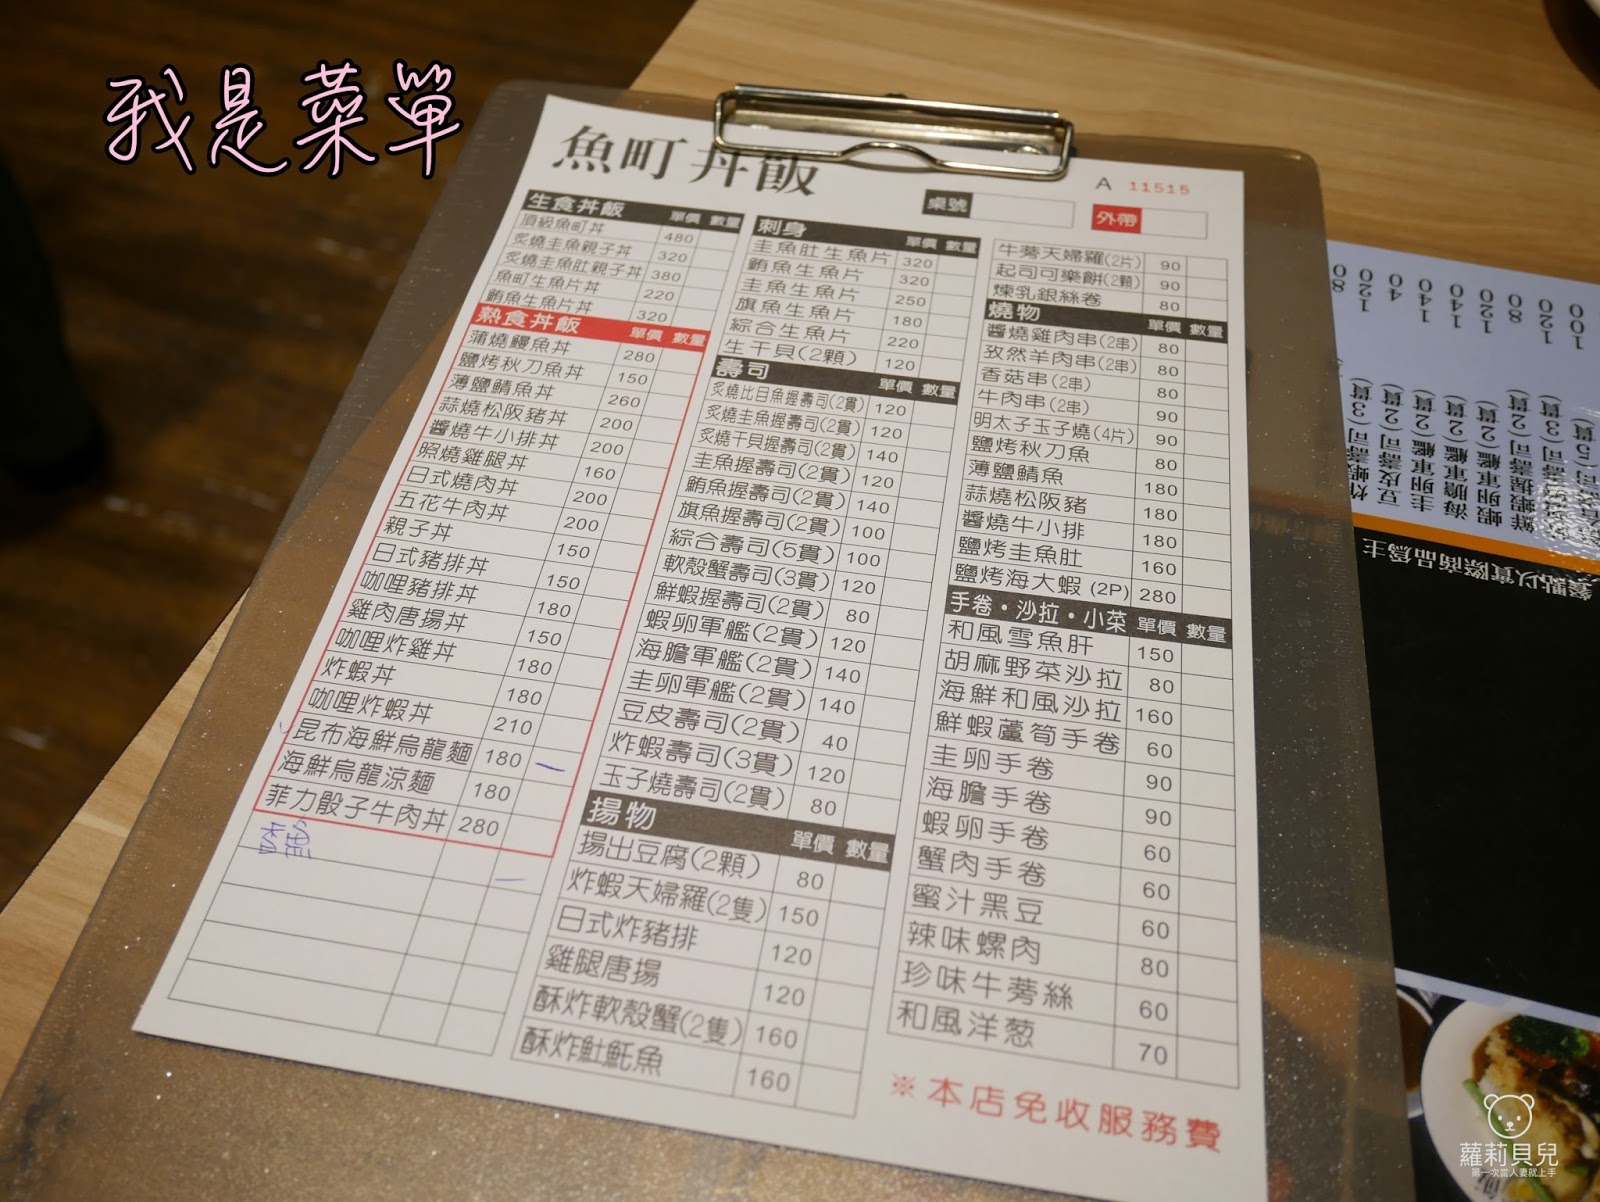 我是菜單
魚町丼飯
桌號
外帶
A 11515
生食丼飯 單價 數量
頂級魚町丼 480
炙燒圭魚親子丼 320
炙燒圭魚肚親子丼 380
魚町生魚片丼 220
鮪魚生魚片丼 320
熟食丼飯 單價 數量
蒲燒鰻魚丼 280
鹽烤秋刀魚丼 150
薄鹽鯖魚丼 260
蒜燒松阪豬丼 200
醬燒牛小排丼 200
照燒雞腿丼 160
日式燒肉丼 200
五花牛肉丼 200
親子丼 150
日式豬排丼 150
咖哩豬排丼 180
雞肉唐揚丼 150
咖哩炸雞丼 180
炸蝦丼 180
咖哩炸蝦丼 210
昆布海鮮烏龍麵 180
海鮮烏龍涼麵 180
菲力骰子牛肉丼 280
刺身 單價 數量
圭魚肚生魚片 320
鮪魚生魚片 320
圭魚生魚片 250
旗魚生魚片 180
綜合生魚片 220
生干貝(2顆) 120
壽司 單價 數量
炙燒比目魚握壽司(2貫) 120
炙燒圭魚握壽司(2貫) 120
炙燒干貝握壽司(2貫) 140
圭魚握壽司(2貫) 120
鮪魚握壽司(2貫) 140
旗魚握壽司(2貫) 100
綜合壽司(5貫) 100
軟殼蟹壽司(3貫) 120
鮮蝦握壽司(2貫) 80
蝦卵軍艦(2貫) 120
海膽軍艦(2貫) 140
圭卵軍艦(2貫) 140
豆皮壽司(2貫) 40
炸蝦壽司(3貫) 120
玉子燒壽司(2貫) 80
揚物 單價 數量
揚出豆腐(2顆) 80
炸蝦天婦羅(2隻) 150
日式炸豬排 120
雞腿唐揚 120
酥炸軟殼蟹(2隻) 160
酥炸魠魠魚 160
牛蒡天婦羅(2片) 90
起司可樂餅(2顆) 90
煉乳銀絲卷 80
燒物 單價 數量
醬燒雞肉串(2串) 80
孜然羊肉串(2串) 80
香菇串(2串) 80
牛肉串(2串) 90
明太子玉子燒(4片) 90
鹽烤秋刀魚 80
薄鹽鯖魚 180
蒜燒松阪豬 180
醬燒牛小排 180
鹽烤圭魚肚 160
鹽烤海大蝦(2P) 280
手卷・沙拉・小菜 單價 數量
和風雪魚肝 150
胡麻野菜沙拉 80
海鮮和風沙拉 160
鮮蝦蘆筍手卷 60
圭卵手卷 90
海膽手卷 90
蝦卵手卷 60
蟹肉手卷 60
蜜汁黑豆 60
辣味螺肉 80
珍味牛蒡絲 60
和風洋葱 70
※本店免收服務費
炸蝦壽司(3貫) 120
豆皮壽司(2貫) 40
圭卵軍艦(2貫) 140
海膽軍艦(2貫) 140
蝦卵軍艦(2貫) 120
餐點以實際商品為主
蘿莉貝兒
第一次當人妻就上手